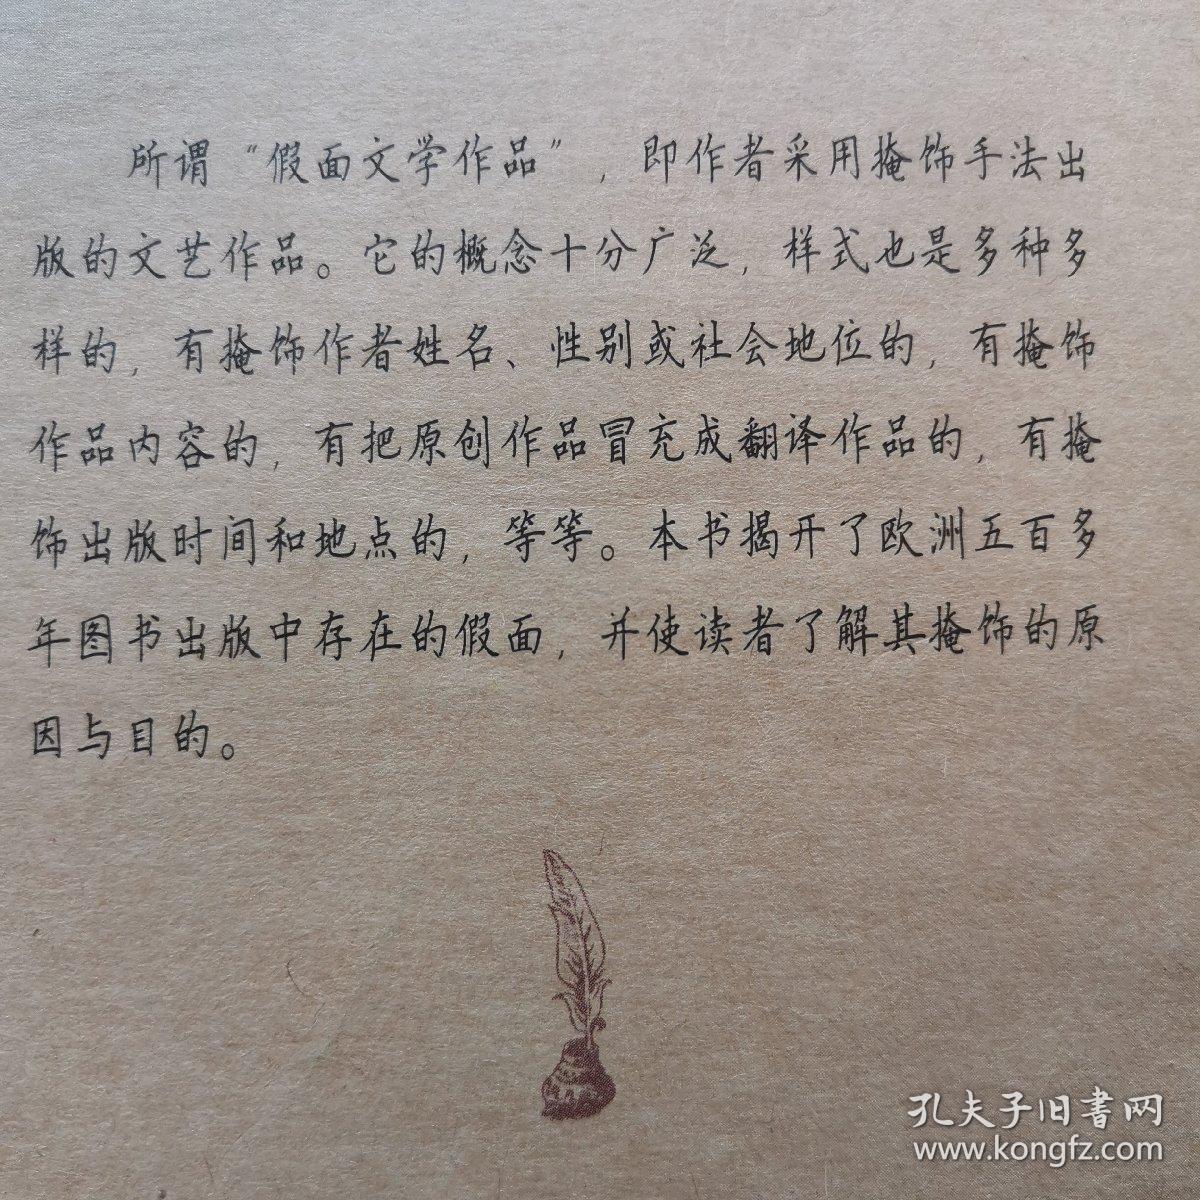 所谓“假面文学作品”，即作者采用掩饰手法出
版的文艺作品。它的概念十分广泛，样式也是多种多
样的，有掩饰作者姓名、性别或社会地位的，有掩饰
作品内容的，有把原创作品冒充成翻译作品的，有掩
饰出版时间和地点的，等等。本书揭开了欧洲五百多
年图书出版中存在的假面，并使读者了解其掩饰的原
因与目的。
孔夫子旧書网
www.kongfz.com